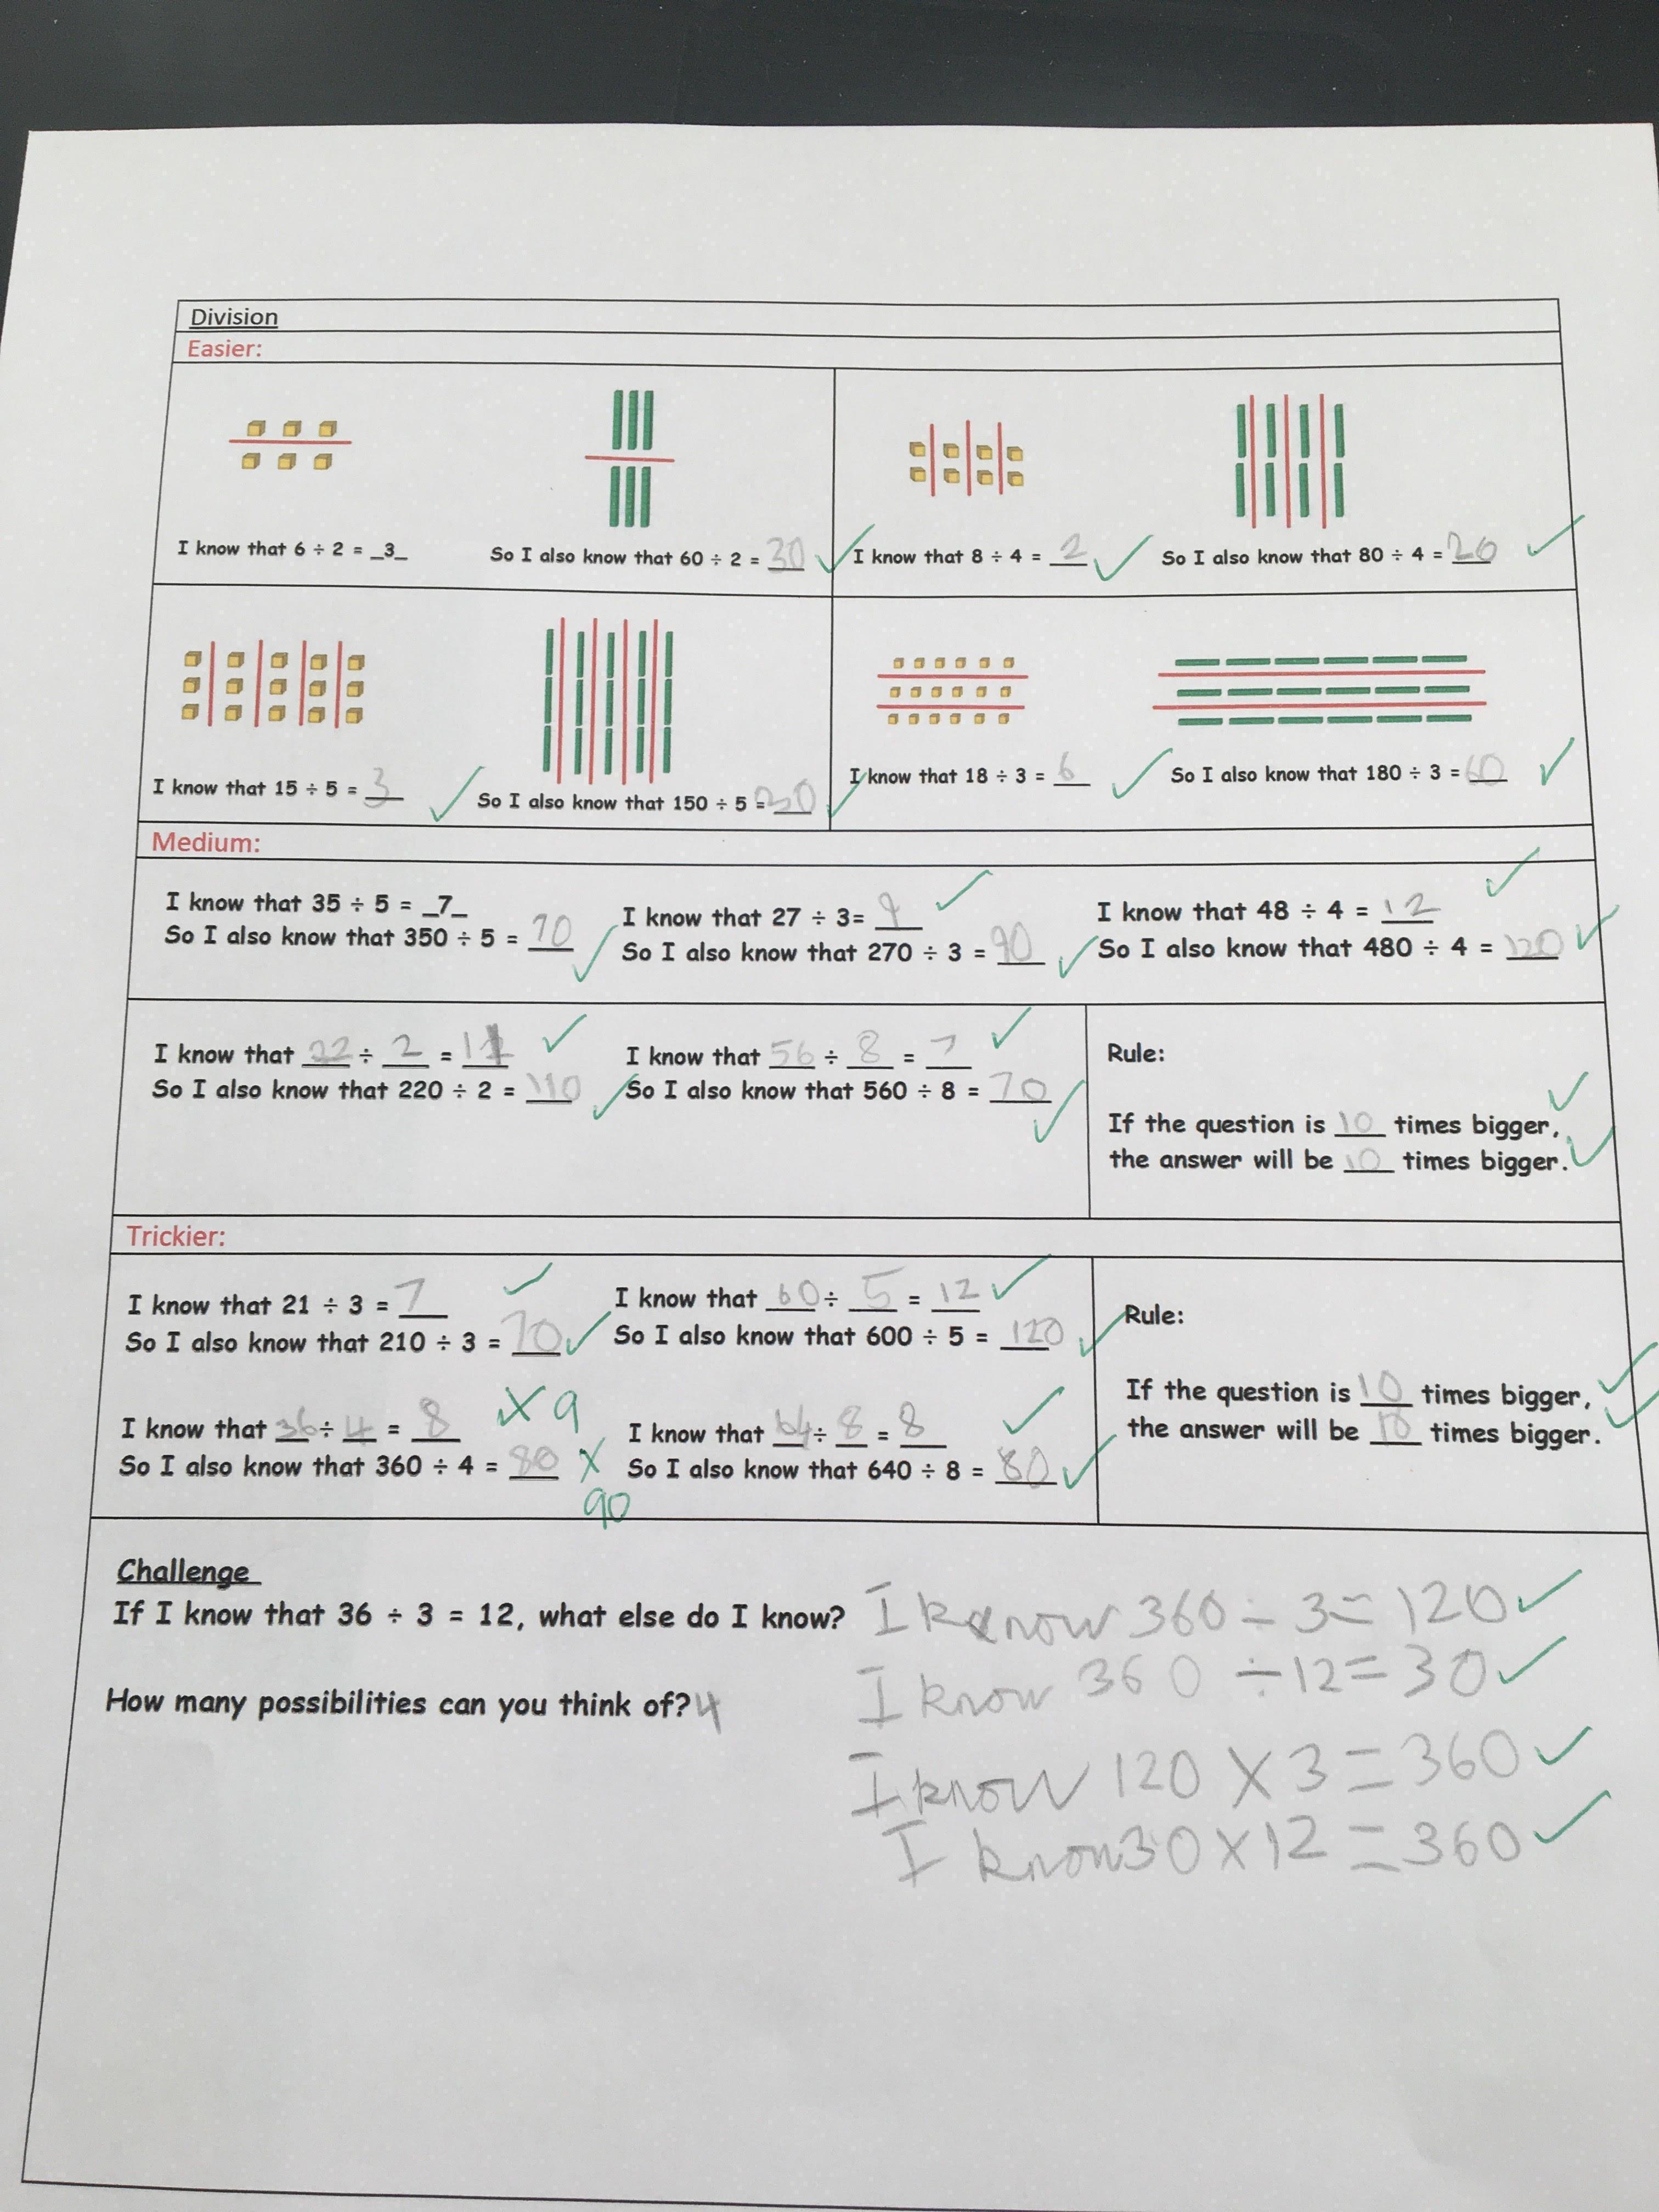 Division
Easier:
I know that 6 ÷ 2 = _3_ So I also know that 60 ÷ 2 = 30
I know that 8 ÷ 4 = 2 So I also know that 80 ÷ 4 = 20
I know that 15 ÷ 5 = 3 So I also know that 150 ÷ 5 = 30
I know that 18 ÷ 3 = 6 So I also know that 180 ÷ 3 = 60
Medium:
I know that 35 ÷ 5 = _7_
So I also know that 350 ÷ 5 = 70
I know that 27 ÷ 3= 9
So I also know that 270 ÷ 3 = 90
I know that 48 ÷ 4 = 12
So I also know that 480 ÷ 4 = 120
I know that 22 ÷ 2 = 11
So I also know that 220 ÷ 2 = 110
I know that 56 ÷ 8 = 7
So I also know that 560 ÷ 8 = 70
Rule:
If the question is 10 times bigger,
the answer will be 10 times bigger.
Trickier:
I know that 21 ÷ 3 = 7
So I also know that 210 ÷ 3 = 70
I know that 60 ÷ 5 = 12
So I also know that 600 ÷ 5 = 120
I know that 36 ÷ 4 = 8 x 9
So I also know that 360 ÷ 4 = 80 x
90
I know that 64 ÷ 8 = 8
So I also know that 640 ÷ 8 = 80
Rule:
If the question is 10 times bigger,
the answer will be 10 times bigger.
Challenge
If I know that 36 ÷ 3 = 12, what else do I know?
How many possibilities can you think of? 4
I know 360 ÷ 3 = 120
I know 360 ÷ 12 = 30
I know 120 X 3 = 360
I know 30 x 12 = 360